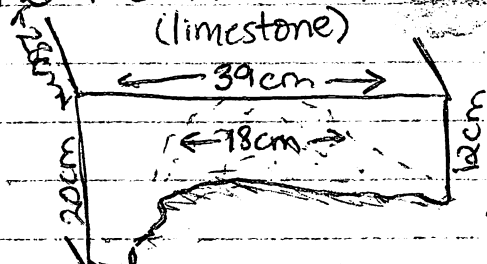 (limestone)
39cm
18cm
20cm
12cm